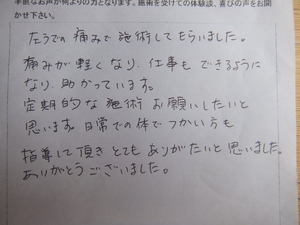 率直なお声が何よりの力となります。施術を受けての体験談、喜びの声をお聞
かせ下さい。
左うでの痛みで施術してもらいました。
痛みが軽くなり、仕事もできるように
なり、助かっています。
定期的な施術お願いしたいと
思います。日常での体でつかい方も
指導して頂きとてもありがたいと思いました。
ありがとうございました。